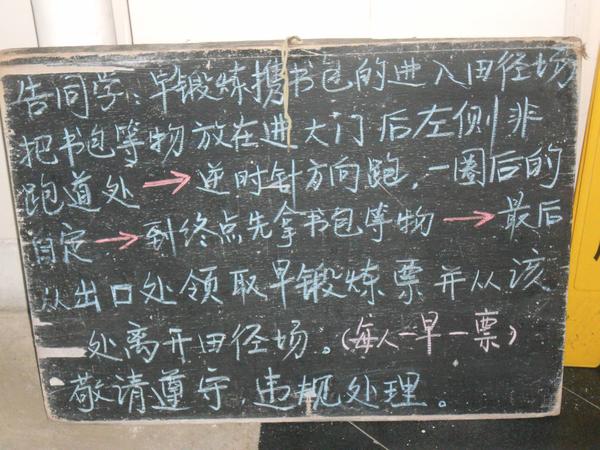 告同学：早锻炼携书包的进入田径场
把书包等物放在进大门后左侧非
跑道处→逆时针方向跑，一圈后的
自定→到终点先拿书包等物→最后
从出口处领取早锻炼票并从该
处离开田径场。（每人一早一票）
敬请遵守，违规处理。